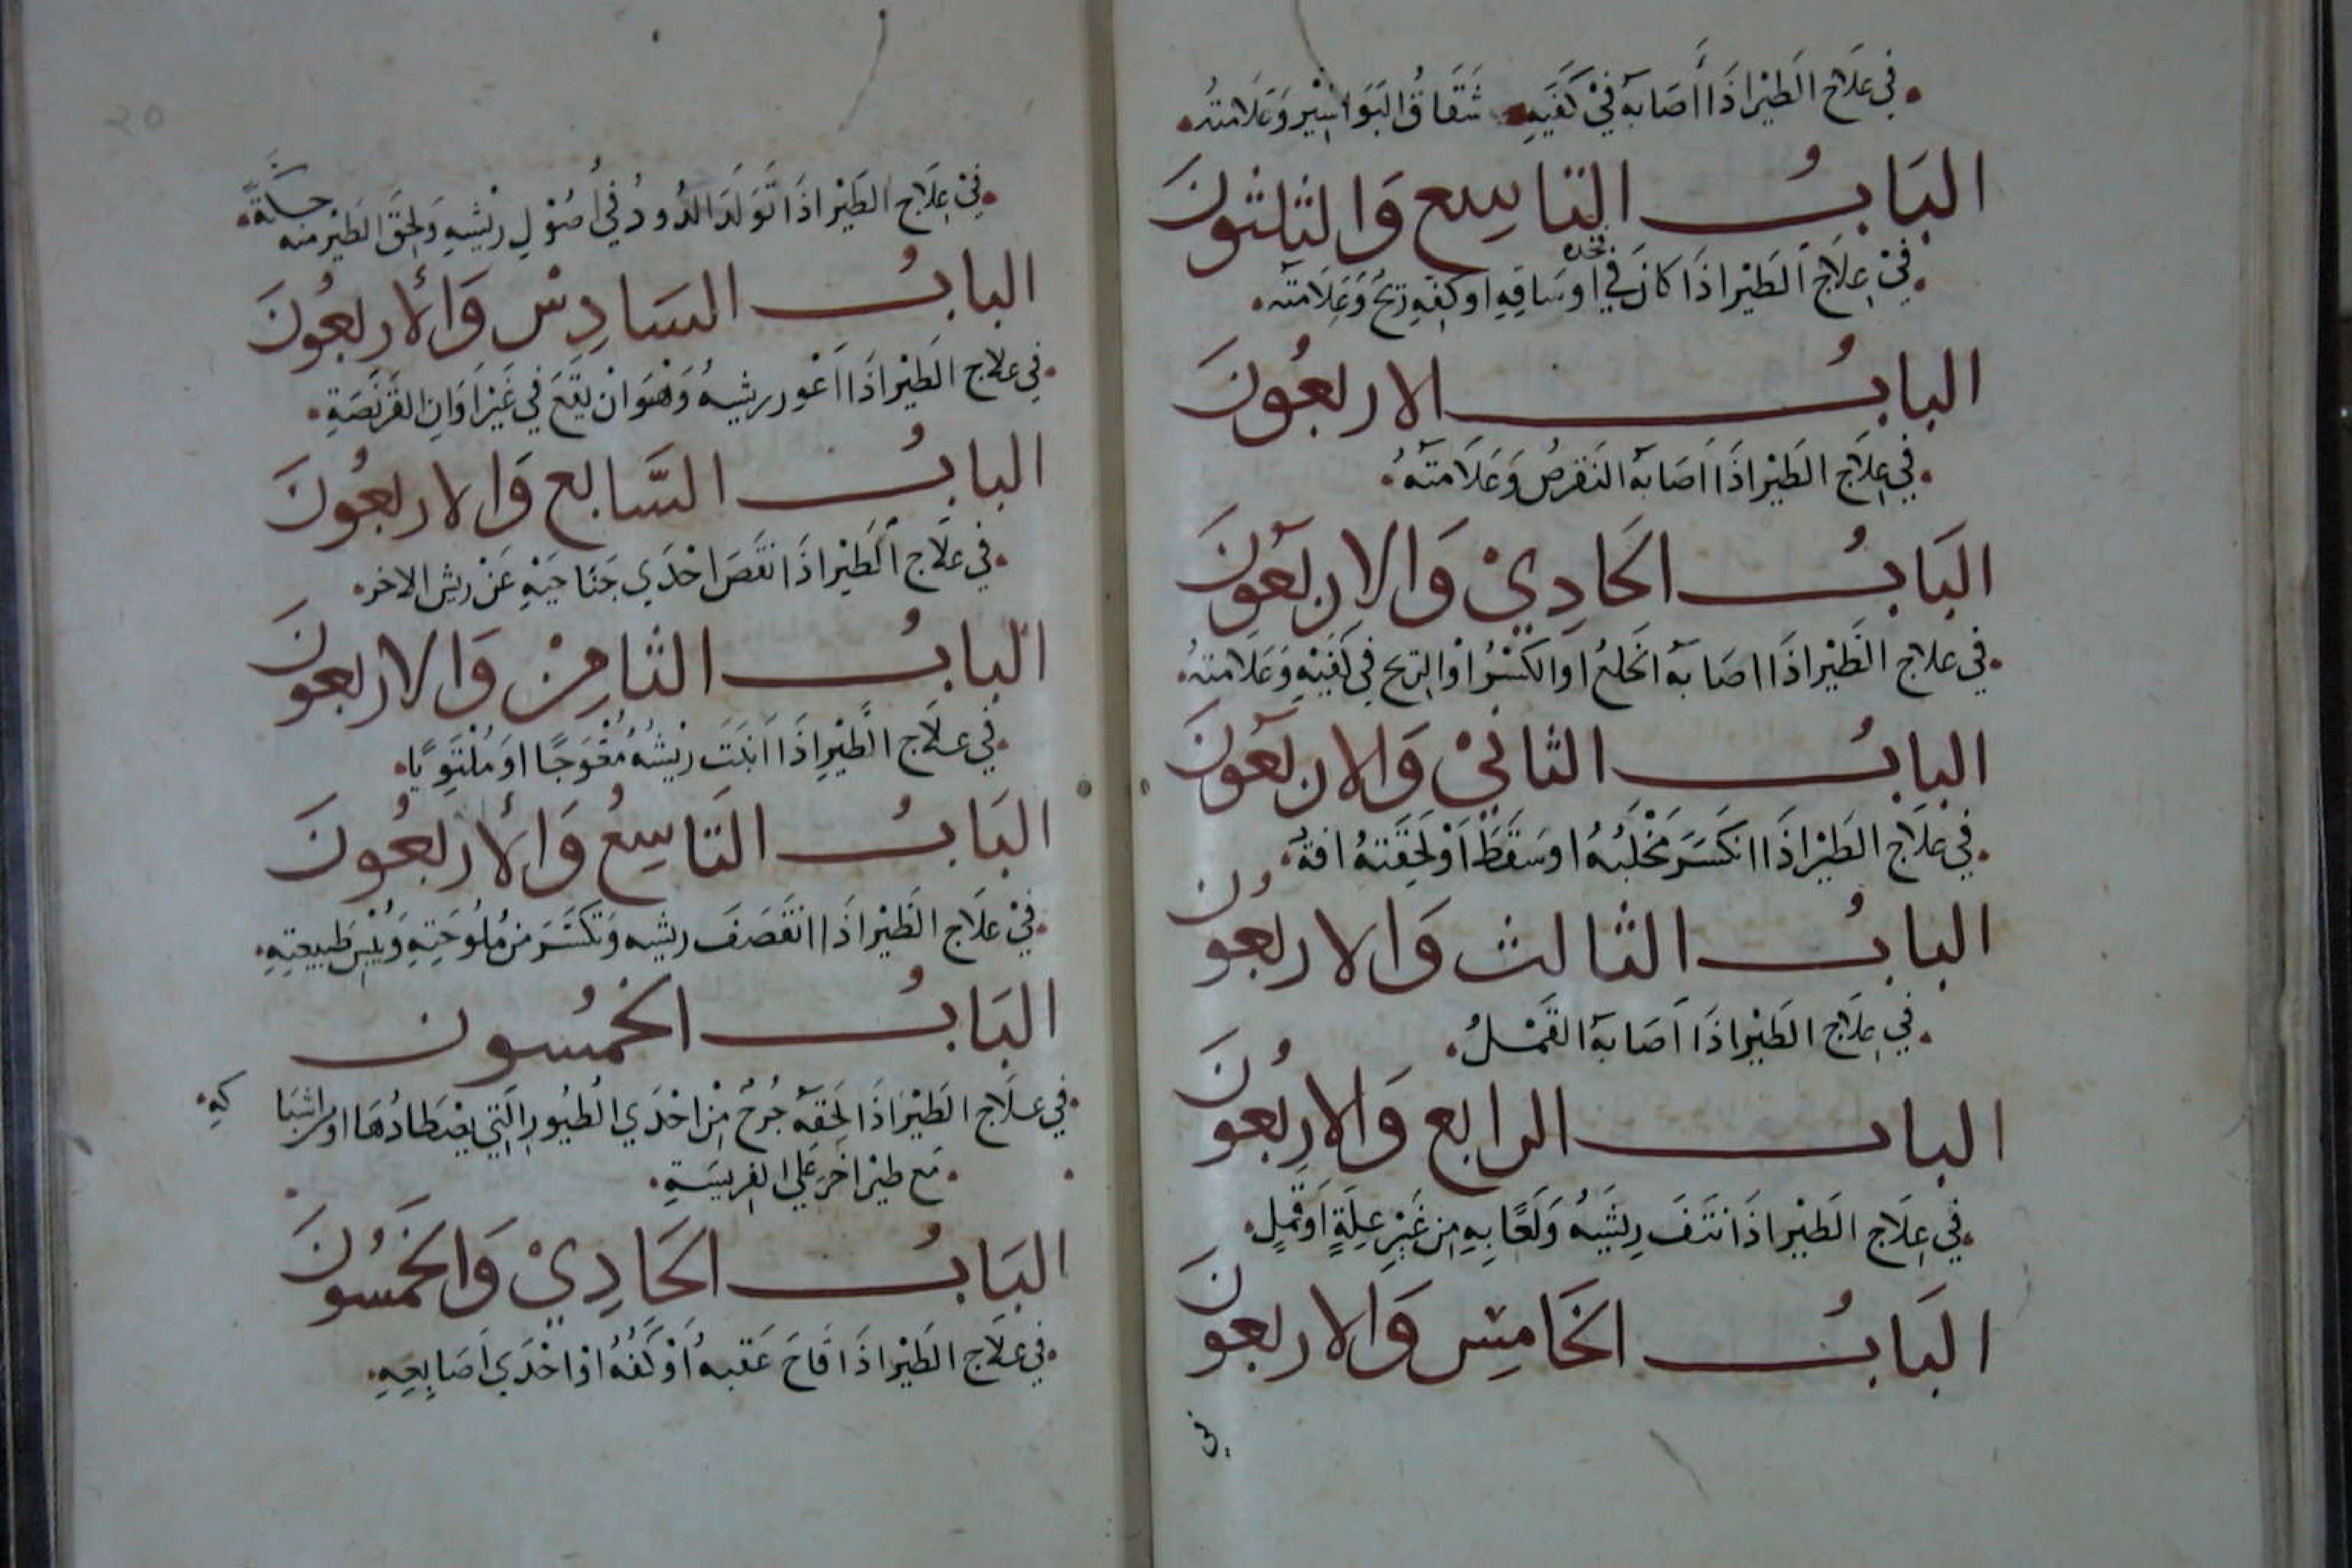 في علاج الطير اذا اصابه في كفيه شقاق البواسير وعلامته
الباب التاسع والثلثون
في علاج الطير اذا كان في فخده او ساقه او كفه ريح وعلامته
الباب الاربعون
في علاج الطير اذا اصابه النقرص وعلامته
الباب الحادي والاربعون
في علاج الطير اذا اصابه الخلع او الكسر او الريح في كفيه وعلامته
الباب الثاني والاربعون
في علاج الطير اذا انكسر مخلبه او سقط او لحقته افة
الباب الثالث والاربعون
في علاج الطير اذا اصابه القمل
الباب الرابع والاربعون
في علاج الطير اذا نتف ريشه ولعا به من غير علة او قمل
الباب الخامس والاربعون
في
٢٥
في علاج الطير اذا تولد الدود في اصول ريشه ولحق الطير منه حكة
الباب السادس والأربعون
في علاج الطير اذا اعور ريشه وهو ان يقع في غير اوان القرنصة
الباب السابع والاربعون
في علاج الطير اذا نقص احدي جناحيه عن ريش الاخر
الباب الثامن والاربعون
في علاج الطير اذا انبت ريشه معوجا او ملتويا
الباب التاسع والأربعون
في علاج الطير اذا انقصف ريشه وتكسر من ملوحته ويبس طبيعته
الباب الخمسون
في علاج الطير اذا لحقه جرح من احدي الطيور التي يصطادها او من اشتباكه
مع طير اخر علي الفريسة
الباب الحادي والخمسون
في علاج الطير اذا قاح عقبه او كفه او احدي اصابعه